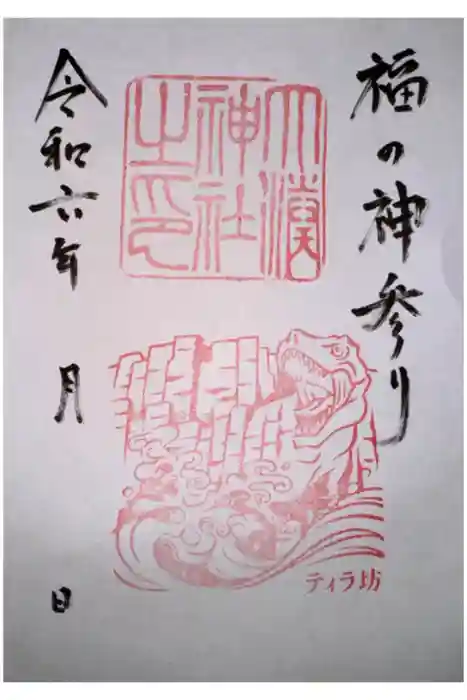 福の神参り
大湊
神社
之印
ティラ坊
令和六年 月 日